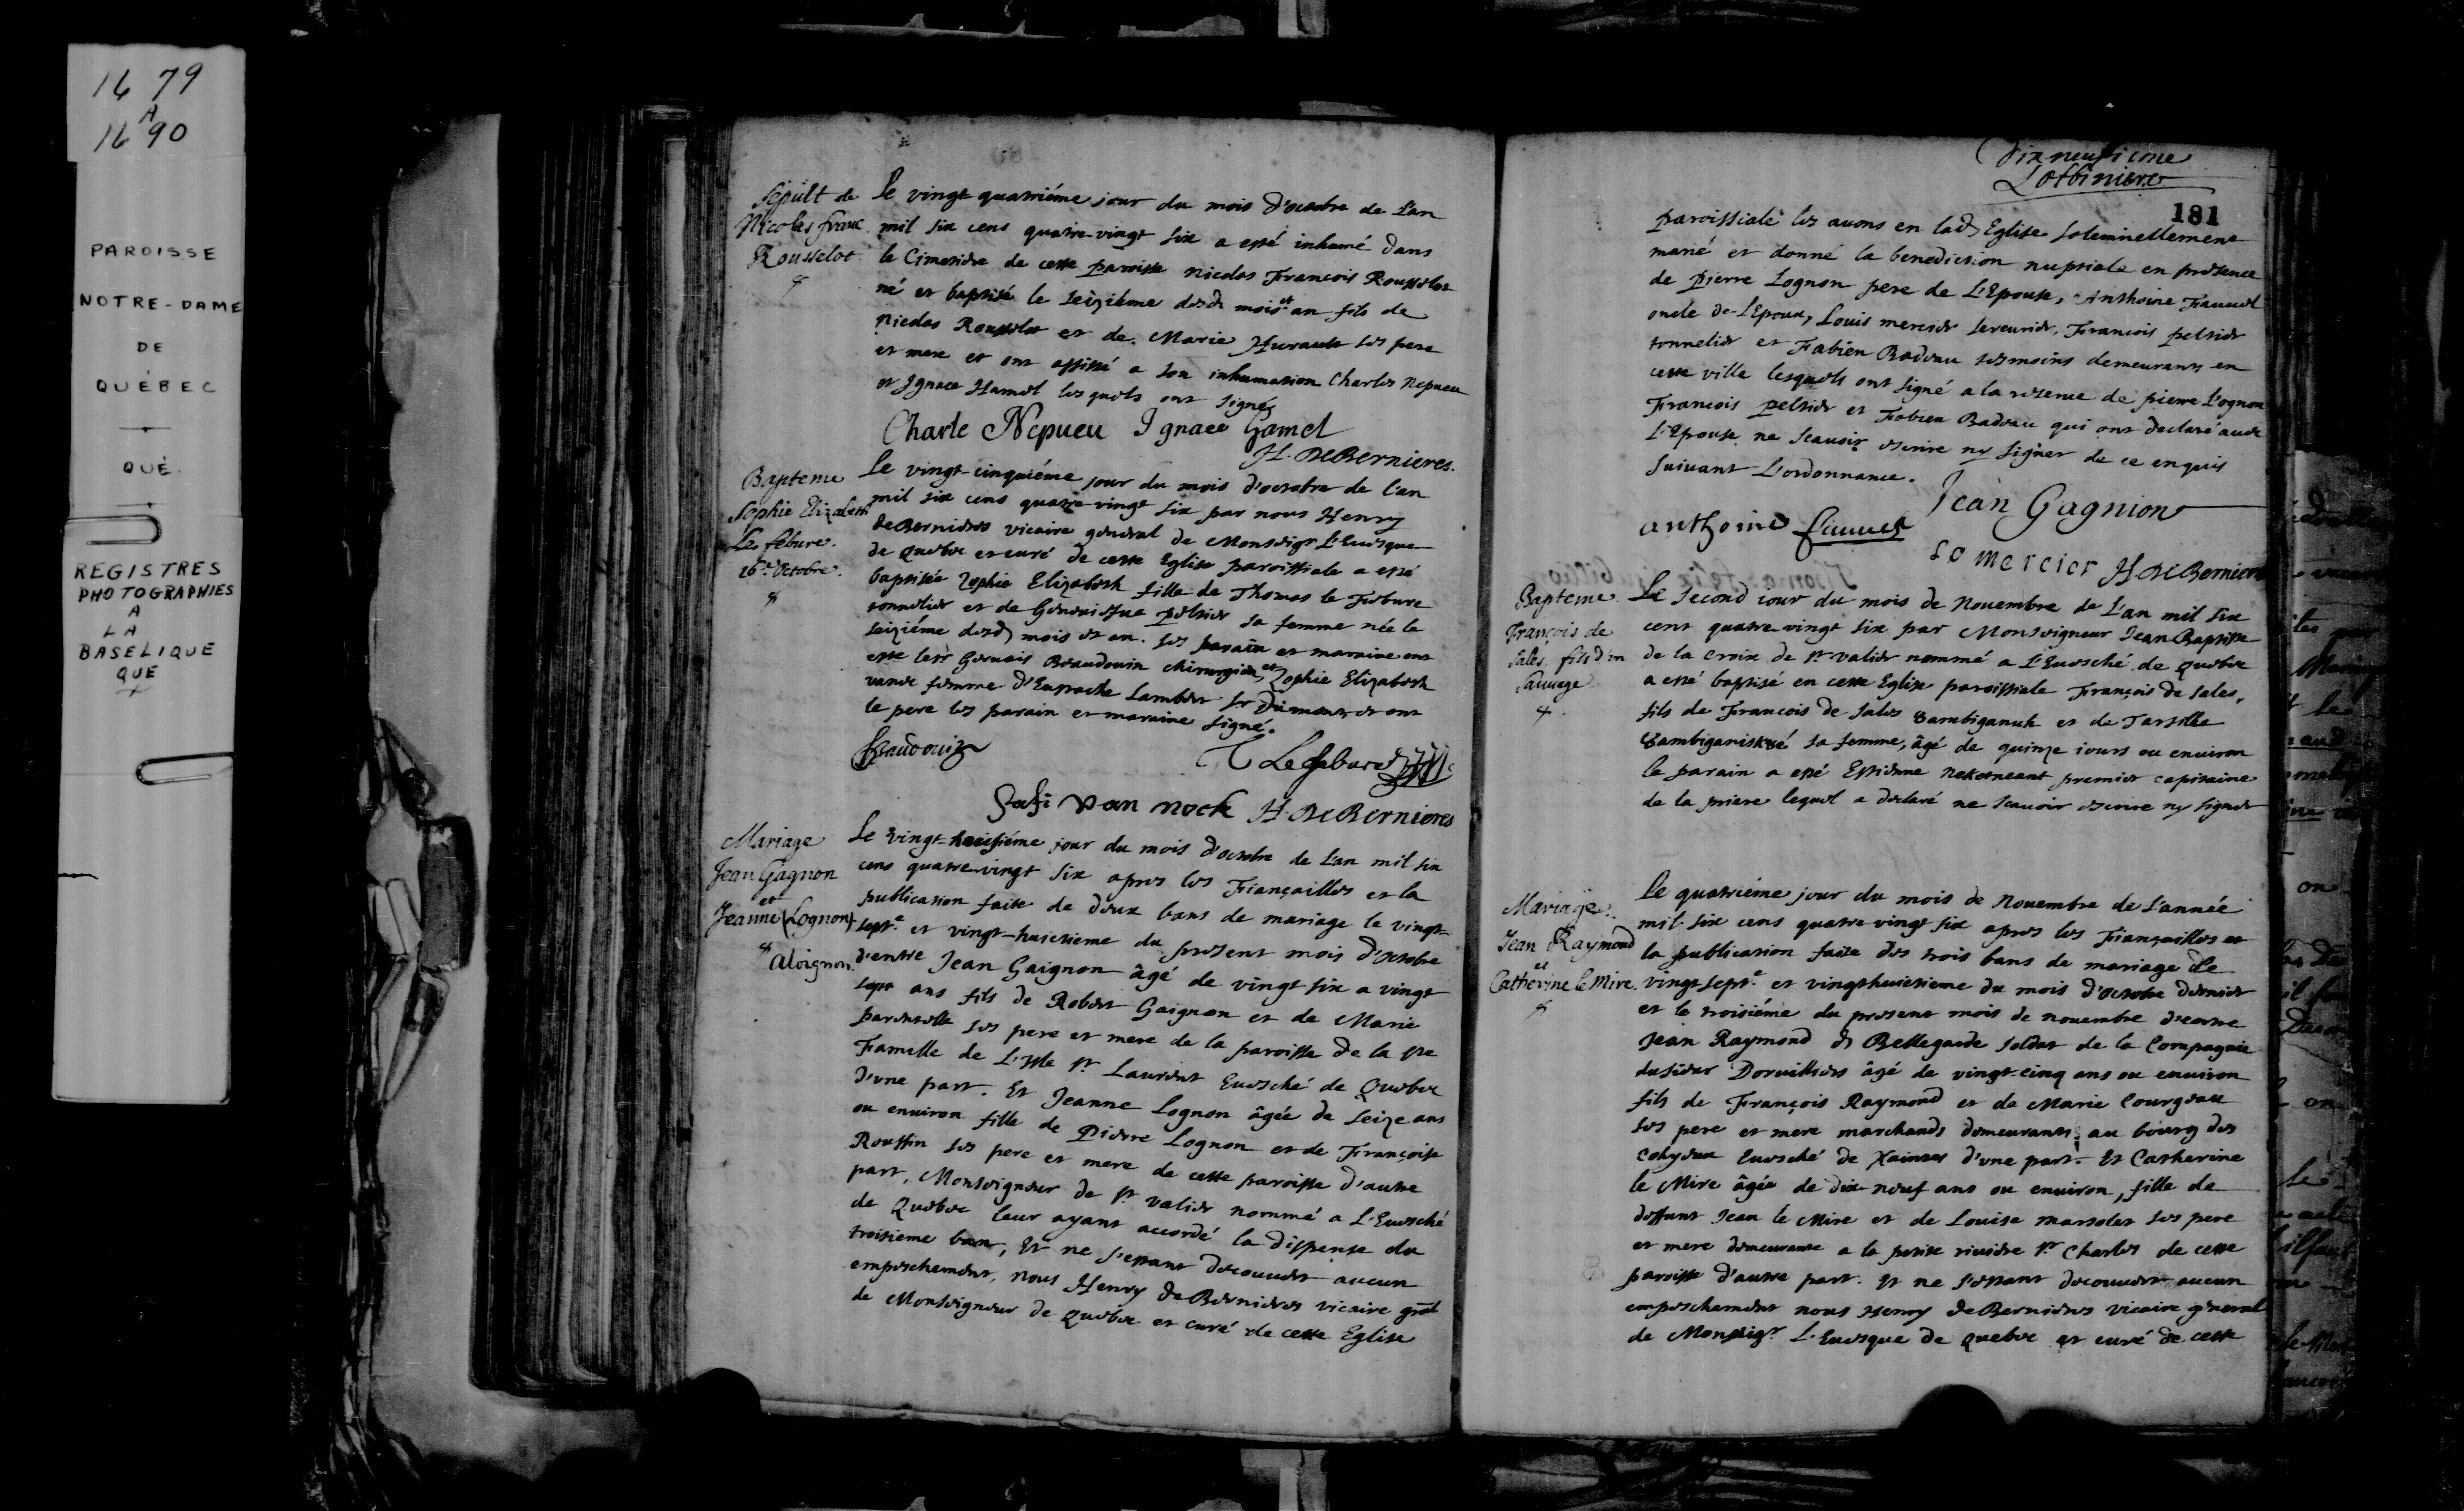 1679
A
1690
PAROISSE
NOTRE-DAME
DE
QUÉBEC
QUÉ.
REGISTRES
PHOTOGRAPHIES
A
LA
BASELIQUE
QUE
Sepult de
Nicolas franc
Rousselot
Le vingt quatriéme jour du mois d'octobre de L'an
mil six cens quatre-vingt six a esté inhumé dans
le Cimetiere de cette paroisse Nicolas François Rousselot
né et baptisé le seiziéme desd. mois et an fils de
Nicolas Rousselot et de Marie Hurault ses pere
et mere et ont assisté a son inhumation Charles Nepueu
et Ignace Hamel lesquels ont signé
Charle Nepueu Ignace Hamel
H. DeBernieres.
Bapteme
Sophie Elizabeth
Le febure.
16e. Octobre.
Le vingt-cinquiéme jour du mois d'octobre de l'an
mil six cens quatre-vingt six par nous Henry
deBernieres vicaire general de Monseigr. L'Euesque
de Quebec et curé de cette Eglise paroissiale a esté
baptisée Sophie Elizabeth fille de Thomas le Febure
tonnelier et de Geneuiefue peltier sa femme née le
seiziéme desd. mois et an. ses parain et maraine ont
esté le sr Geruais Beaudouin chirurgien, et Sophie Elizabeth
vanoc femme d'Eustache Lambert sr Dumont et ont
le pere les parain et maraine signé.
Baudouin
T Lefebure
van nock H. DeBernieres
Mariage
Jean Gagnon
et
Jeanne (Lognon)
aloignon.
Le vingt-huitiéme jour du mois d'octobre de L'an mil six
cens quatre-vingt six apres les Fiançailles et la
publication faite de deux bans de mariage le vingt-
septe. et vingt-huictieme du present mois d'octobre
d'entre Jean Gaignon âgé de vingt six a vingt
sept ans fils de Robert Gaignon et de Marie
parentelle ses pere et mere de la paroisse de la Ste
Famille de L'Isle St Laurent Euesché de Quebec
d'une part. Et Jeanne Lognon âgée de seize ans
ou environ fille de Pierre Lognon et de Françoise
Roussin ses pere et mere de cette paroisse d'autre
part, Monseigneur de St valier nommé a L'Euesché
de Quebec leur ayant accordé la dispense du
troisieme ban, Et ne s'estant decouuert aucun
empeschement, nous Henry de Bernieres vicaire gnãl
de Monseigneur de Quebec et curé de cette Eglise
Lotbiniere
181
paroissiale les auons en lad. Eglise solemnellement
marié et donné la benediction nuptiale en presence
de pierre Lognon pere de L'Epouse, Anthoine Fauuel
oncle de L'Epoux, Louis mercier serrurier, François peltier
tonnelier et Fabien Badeau tesmoins demeurants en
cette ville lesquels ont signé a la reserue de pierre L'ognon
François peltier et Fabien Badeau qui ont declaré auec
L'Epouse ne scauoir escrire ny signer de ce enquis
suivant L'ordonnance.
Jean Gagnion
anthoine fauuel
Lo mercier H. DeBernieres
Bapteme
François de
Sales, fils d'un
Sauuage
Le second iour du mois de Nouembre de L'an mil six
cent quatre-vingt six par Monseigneur Jean Baptiste
de la croix de St valier nommé a L'Euesché de Quebec
a esté baptisé en cette Eglise paroissiale François de Sales,
fils de François de Sales 8ambiganuk et de Tarsille
8ambiganiskué sa femme, âgé de quinze iours ou environ
le parain a esté Estienne Nekotneant premier capitaine
de la priere lequel a declaré ne scauoir escrire ny signer
Mariage
Jean Raymond
et
Catherine le Mire.
Le quatriéme jour du mois de Nouembre de L'année
mil six cens quatre vingt six apres les Fiançailles et
la publication faite des trois bans de mariage le
vingt-septe. et vingthuictieme du mois d'octobre dernier
et le troisiéme du present mois de nouembre d'entre
Jean Raymond dt Bellegarde soldat de la Compagnie
du sieur Doruilliers âgé de vingt-cinq ans ou environ
fils de François Raymond et de Marie Courgeau
ses pere et mere marchands demeurants au bourg des
Euesché de Xaintes d'une part. Et Catherine
le Mire âgée de dix-neuf ans ou environ, fille de
deffunt Jean le Mire et de Louise marsolet ses pere
et mere demeurante a la petite riuiere St Charles de cette
paroisse d'autre part. Et ne s'estant decouuert aucun
empeschement nous Henry deBernieres vicaire general
de Monseigr. L'Euesque de Quebec et curé de cette